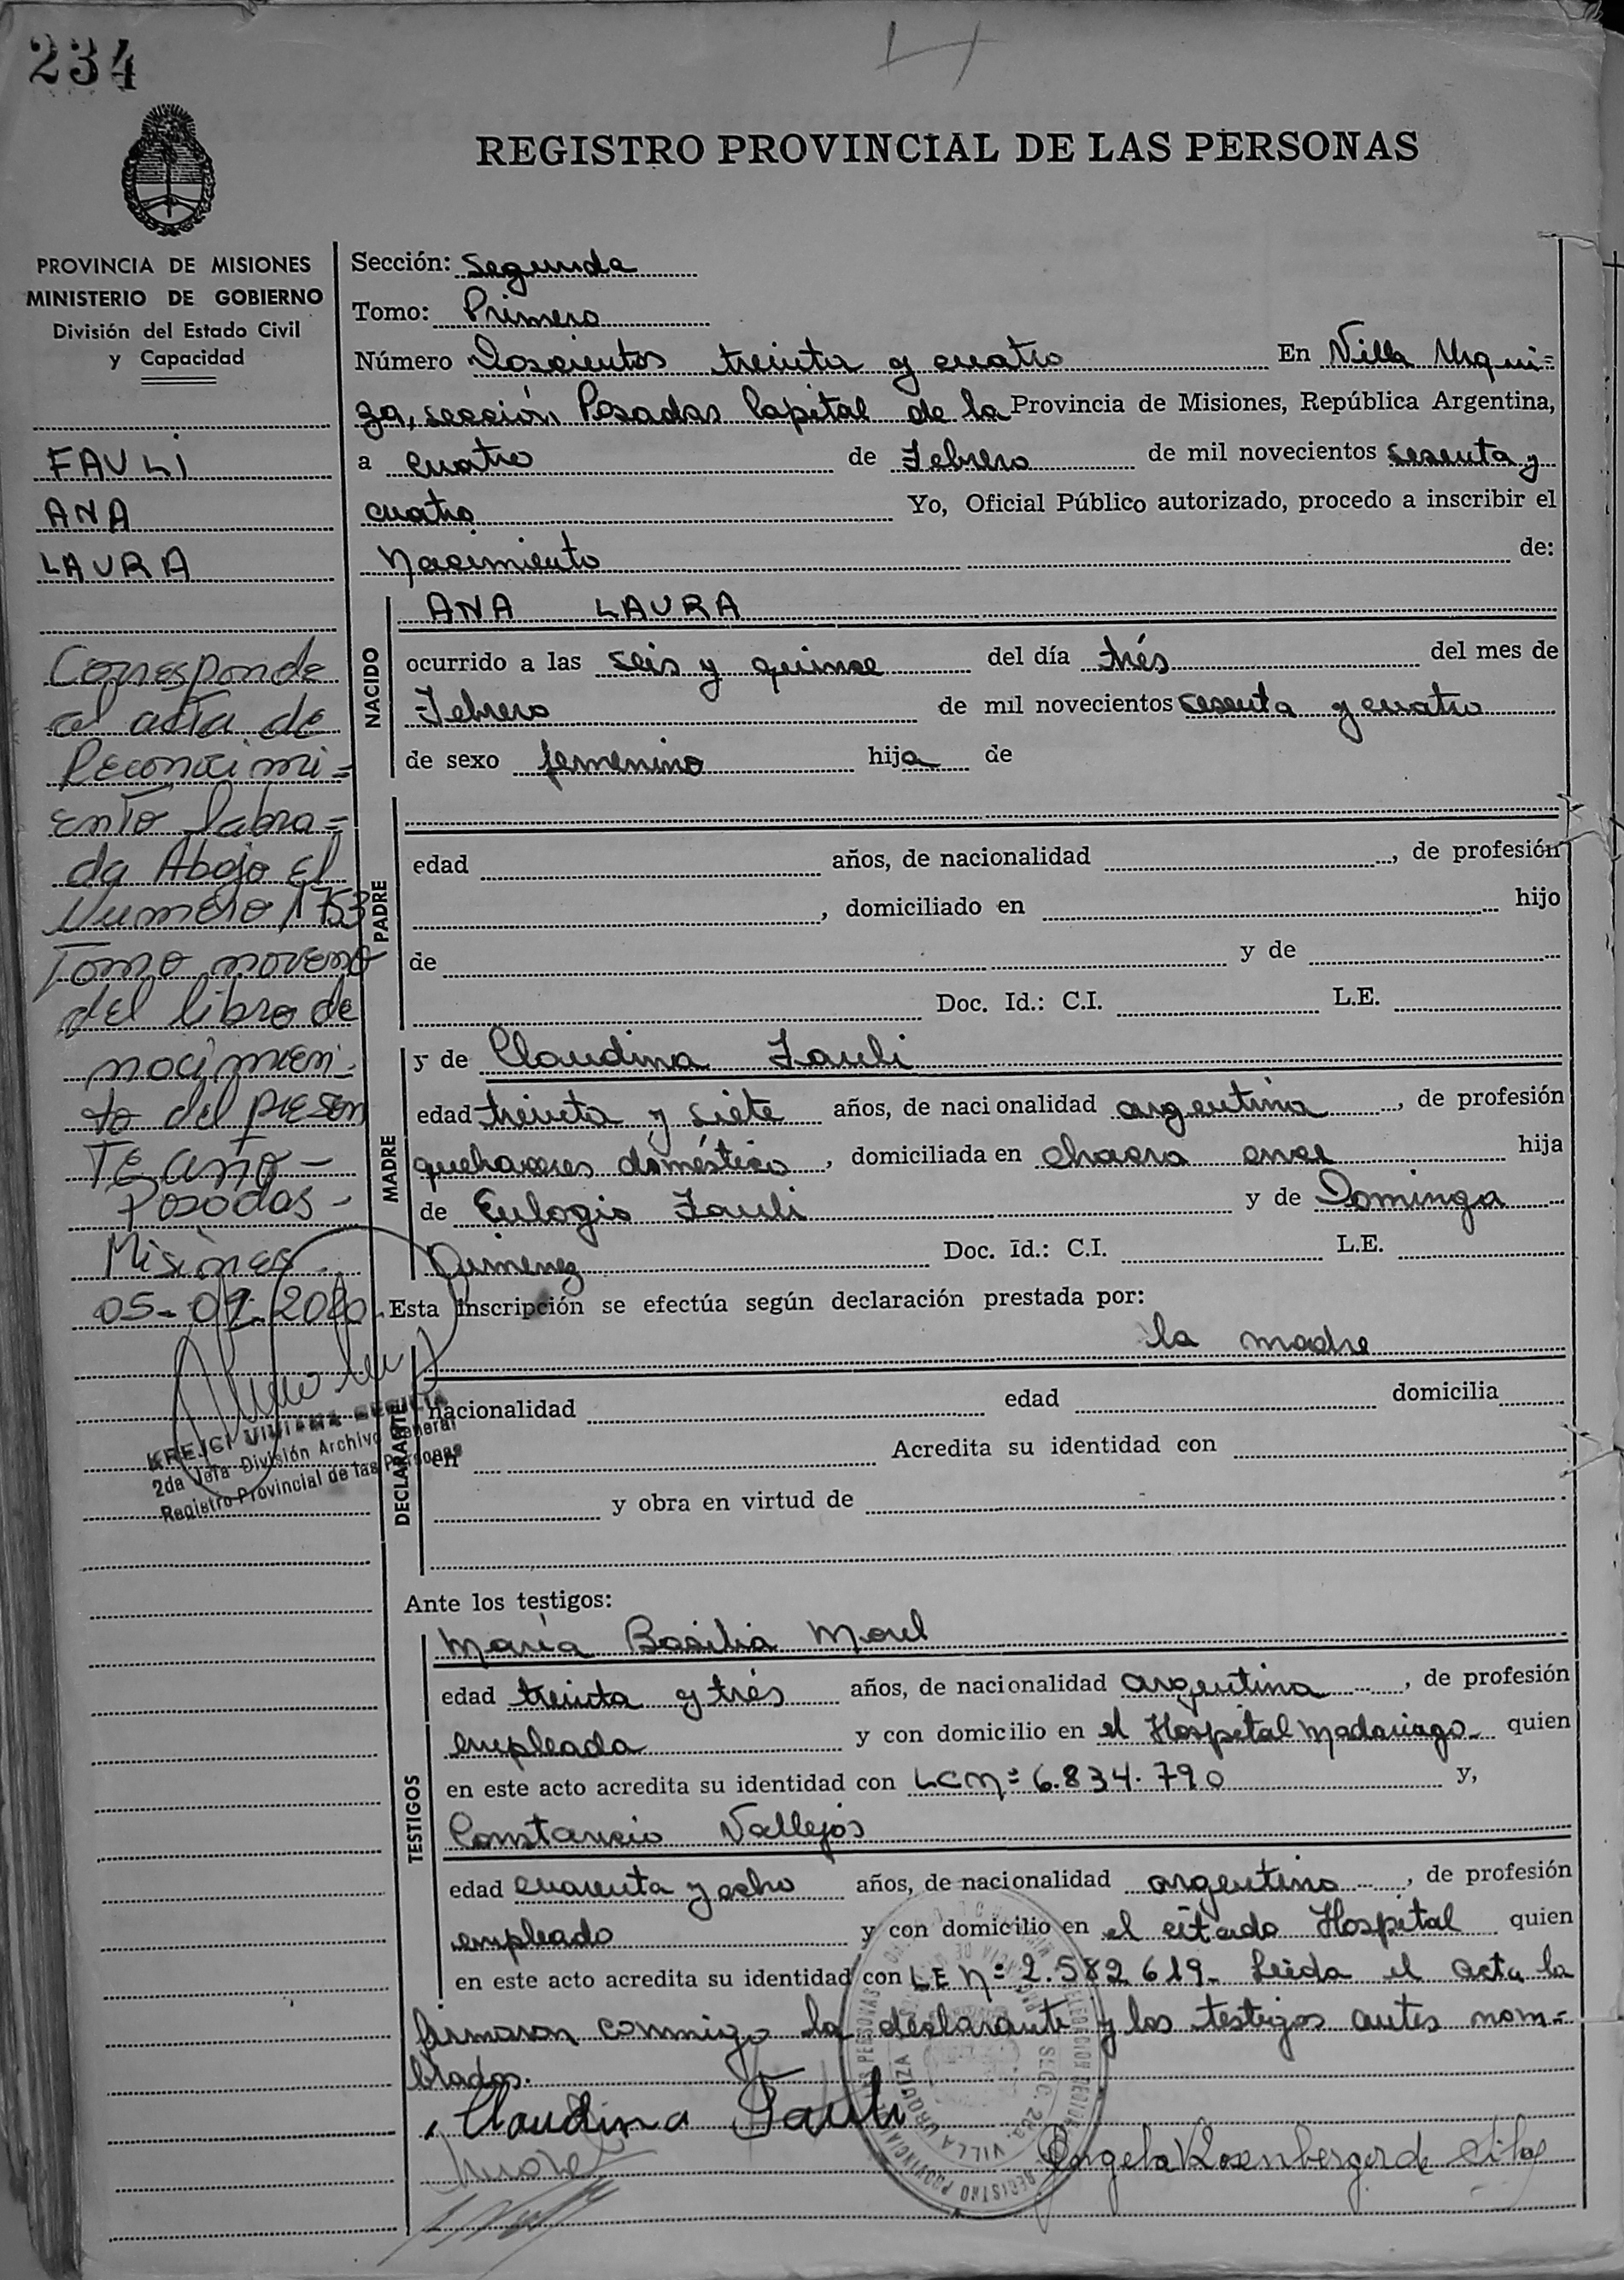 234
REGISTRO PROVINCIAL DE LAS PERSONAS
PROVINCIA DE MISIONES
MINISTERIO DE GOBIERNO
División del Estado Civil
y Capacidad
FAULI
ANA
LAURA
Corresponde
al acta de
Reconocimi=
ento labra=
da Abajo El
Numero 1753
Tomo noveno
del libro de
nacimien-
to del presen
TE año-
Posadas-
Misiones
KREJCI VIVIANA CECILIA
2da Jefa División Archivo General
Registro Provincial de las Personas
Sección: Segunda
Tomo: Primero
Número Doscientos treinta y cuatro En Villa Urqui=
za, sección Posadas Capital de la Provincia de Misiones, República Argentina,
a cuatro de Febrero de mil novecientos sesenta y
cuatro Yo, Oficial Público autorizado, procedo a inscribir el
Nacimiento de:
NACIDO
ANA LAURA
ocurrido a las seis y quince del día trés del mes de
Febrero de mil novecientos sesenta y cuatro
de sexo femenino hija de
PADRE
edad años, de nacionalidad , de profesión
, domiciliado en hijo
de y de
Doc. Id.: C.I. L.E.
MADRE
y de Claudina Fauli
edad treinta y siete años, de nacionalidad argentina , de profesión
quehaceres doméstico , domiciliada en chacra once hija
de Eulogio Fauli y de Dominga
Jimenez Doc. Id.: C.I. L.E.
Esta inscripción se efectúa según declaración prestada por:
la madre
DECLARANTE
nacionalidad edad domicilia
en Acredita su identidad con
y obra en virtud de
Ante los testigos:
TESTIGOS
María Basilia Morel
edad treinta y trés años, de nacionalidad argentina , de profesión
empleada y con domicilio en el Hospital Madariaga quien
en este acto acredita su identidad con LC Nº 6.834.790 y,
Constancio Vallejos
edad cuarenta y ocho años, de nacionalidad argentino , de profesión
empleado y con domicilio en el citado Hospital quien
en este acto acredita su identidad con LE Nº 2.582.619- Leida el acta la
firmaron conmigo la declarante y los testigos antes nom=
brados.
Claudina Fauli
Morel